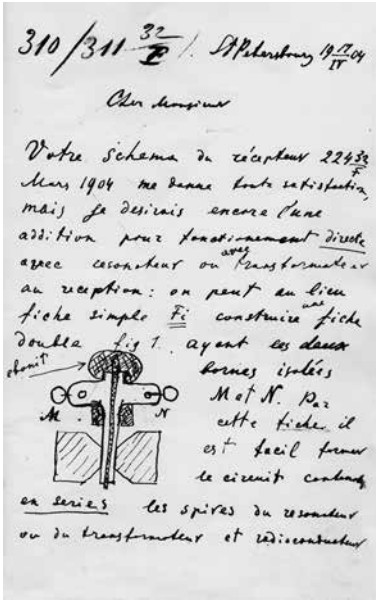 310/311 32/F /. St Petersbourg 19 17/IV 04
Cher Monsieur
Votre schema du récepteur 224 32/F
Mars 1904 me donne toute satisfaction,
mais je desirais encore l'une
addition pour fonctionement directe
avec
avec resonateur ou transformateur
au reception: on peut au lieu
une
fiche simple Fi construire fiche
double fig 1. ayant les deux
ebonit
bornes isolées
M N
M et N. Par
cette fiche il
est facil former
le circuit contenant
en series les spires du resonateur
ou du transformateur et radioconducteur